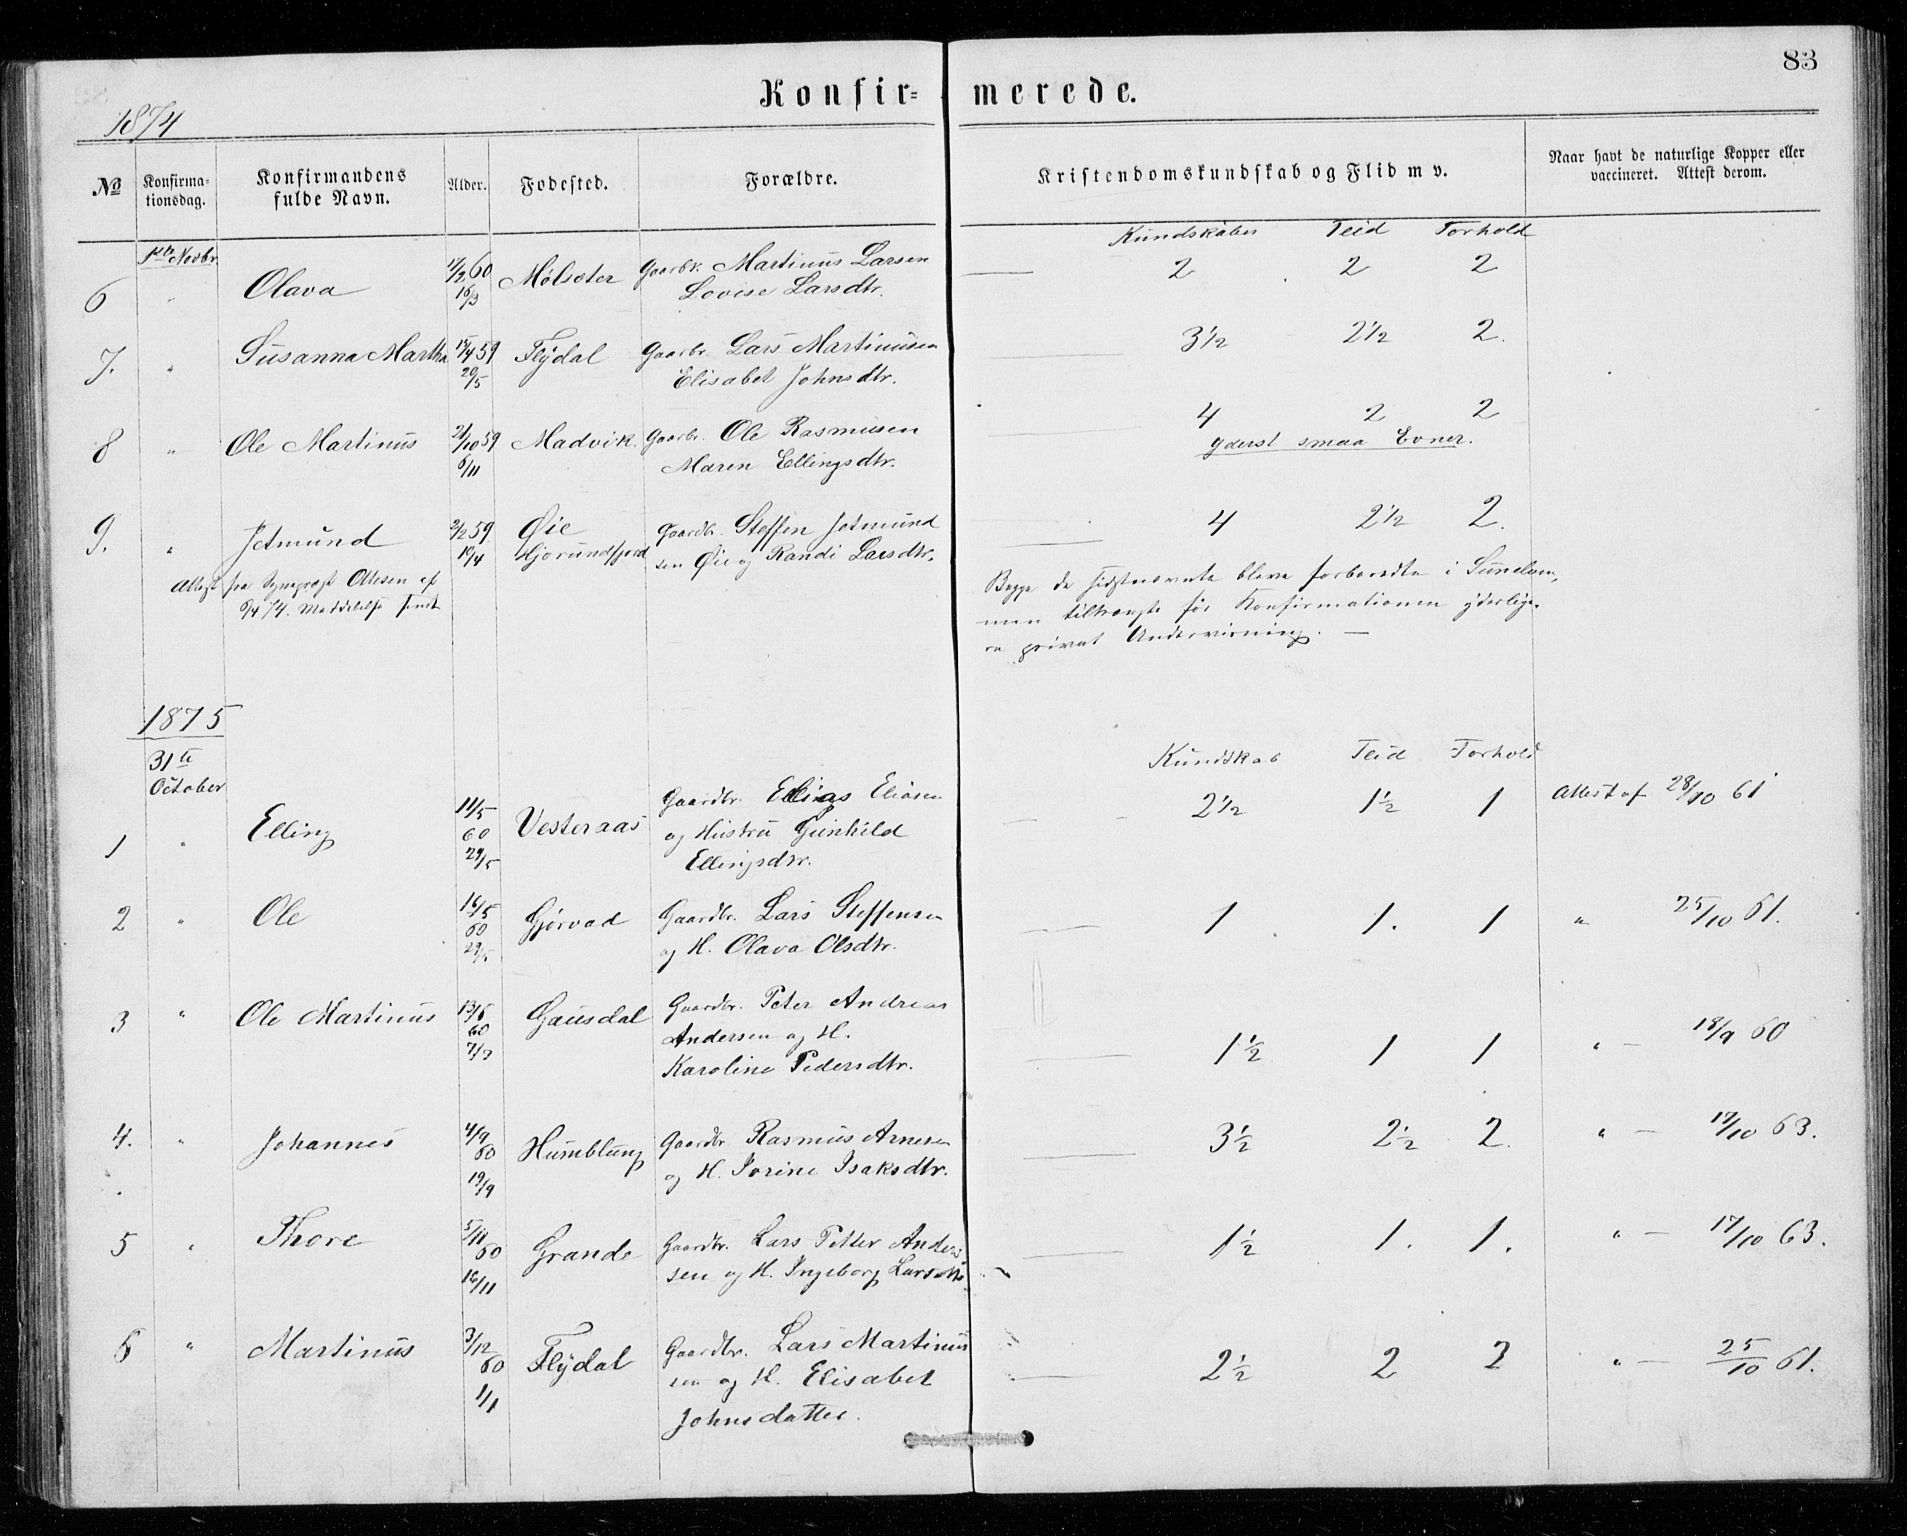 83
Konfir= merede.
1874
No Konfirma- Konfirmandens Alder. Fodested. Forældre. Kristendomskundskab og Flid m v. Naar havt de naturlige Kopper eller
tionsdag. fulde Navn. vaccineret. Attest derom.
1ste Novbr. Kundskaber Flid Forhold
6 " Olava 11/2 60 Mølsæter Gaardbr. Martinus Larsen 2 2 2
16/3 Lovise Larsdtr.
7. " Susanna Martha 15/4 59 Flydal Gaardbr. Lars Martinusen 3½ 2½ 2.
20/5 Elisabet Johnsdtr.
8 " Ole Martinus 21/10 59 Madvik Gaardbr. Ole Rasmusen 4 2 2
6/11 Maren Ellingsdtr. yderst smaa Evner.
9. " Jetmund 2/2 59. Øie Gaardbr. Steffen Jetmund 4 2½ 2.
10/4 Hjørundfjord sen Øie og Randi Larsdtr.
Attest fra Sognepræst Ottesen af
6/4 74. Meddelelse sendt
Begge de sidstnævnte bleve forberedte i Sunelven,
men tiltrængte før Konfirmationen yderlige-
re privat Undervisning. —
1875
31te Kundskab Flid Forhold
October
1 " Elling 11/5 60 29/5 Vesteraas Gaardbr. Elling Eliasen 2½ 1½ 1 Attest af 28/10 61
og Hustru Gunhild
Ellingsdtr.
2 " Ole 16/5 60 29/5 Gjørvad Gaardbr. Lars Steffensen 1 1. 1 " 25/10 61.
og H. Olava Olsdtr.
3 " Ole Martinus 13/6 60 7/9 Gausdal Gaardbr. Peter Andreas 1½ 1 1 " — 18/9 60
Andersen og H.
Karoline Pedersdtr.
4. " Johannes 4/9 60 19/9 Humblung Gaardbr. Rasmus Arnesen 3½ 2½ 2. " — 17/10 63.
og H. Jorine Isaksdtr.
5 " Thore 5/11 60 16/11 Grande Gaardbr. Lars Petter Anders 1½ 1. 1. " — 17/10 63.
sen og H. Ingeborg Larsdtr.
6 " Martinus 3/12 60 1/1 Flydal Gaardbr. Lars Martinus 2½ 2 2 " — 25/10 61.
sen og H. Elisabet
Johnsdatter.